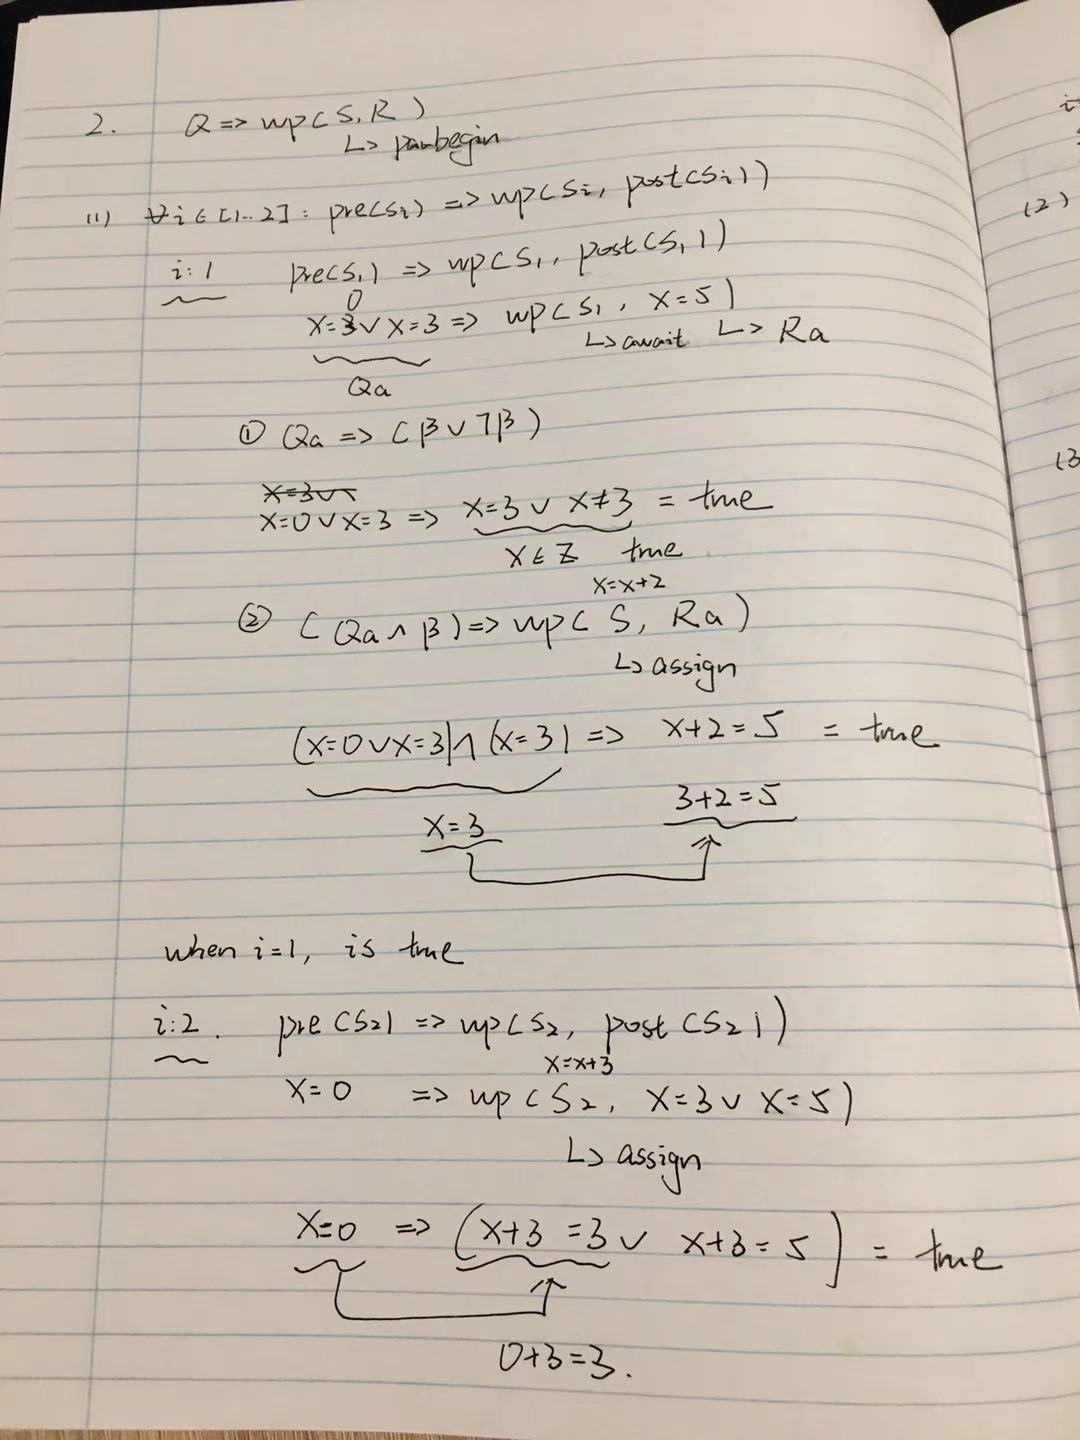 2. Q => wp(S, R)
↳ parbegin
(1) ∀i∈[1..2]: pre(Si) => wp(Si, post(Si))
i:1 pre(S1) => wp(S1, post(S1))
0
x=3∨x=3 => wp(S1, x=5)
↳ await ↳ Ra
Qa
① Qa => (β∨¬β)
x=3∨
x=0∨x=3 => x=3∨x≠3 = true
x∈Z true
x=x+2
② (Qa∧β) => wp(S, Ra)
↳ assign
(x=0∨x=3)∧(x=3) => x+2=5 = true
3+2=5
x=3
when i=1, is true
i:2. pre(S2) => wp(S2, post(S2))
x=x+3
x=0 => wp(S2, x=3∨x=5)
↳ assign
x=0 => (x+3=3∨ x+3=5) = true
0+3=3.
i
(2)
(3